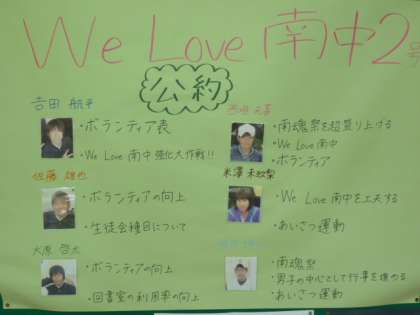 We Love 南中 2号
公約
吉田 航平
・ボランティア表
・We Love 南中 強化大作戦!!
・南魂祭を超盛り上げる
・We Love 南中
・ボランティア
佐藤 雄也
・ボランティアの向上
・生徒会種目について
米澤 未紗梨
・We Love 南中を工夫する
・あいさつ運動
大原 啓太
・ボランティアの向上
・図書室の利用率の向上
・南魂祭
・男子の中心として行事を進める
・あいさつ運動